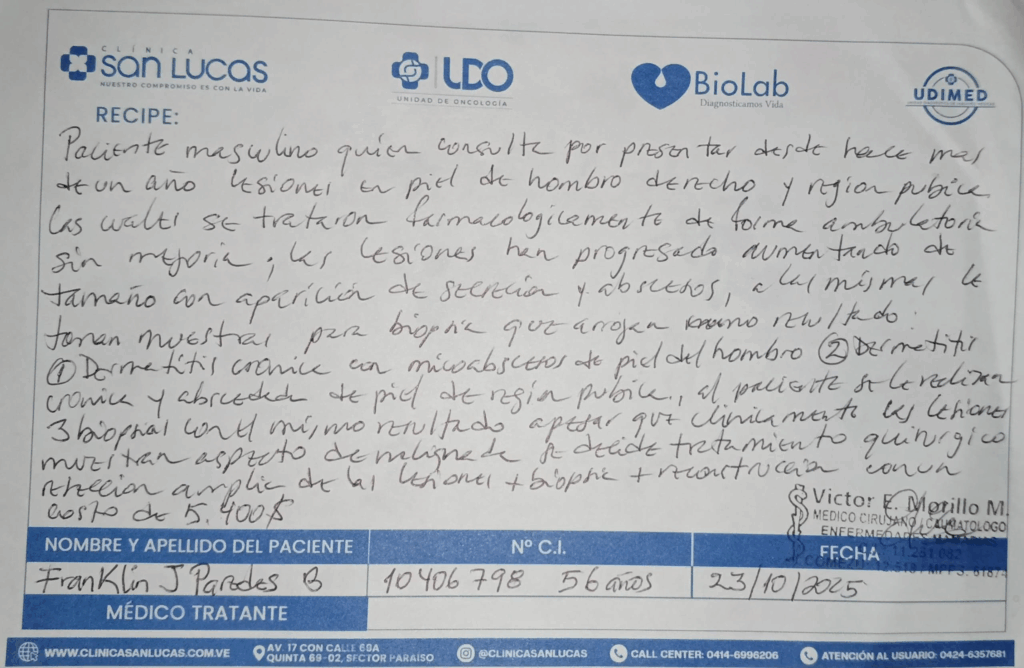 CLÍNICA
SAN LUCAS
NUESTRO COMPROMISO ES CON LA VIDA
UDO
UNIDAD DE ONCOLOGÍA
BioLab
Diagnosticamos Vida
UDIMED
RECIPE:
Paciente masculino quien consulta por presentar desde hace mas
de un año lesiones en piel de hombro derecho y region pubica
las cuales se trataron farmacologicamente de forma ambulatoria
sin mejoria, las lesiones han progresado aumentando de
tamaño con aparición de secreción y abscesos, a las mismas le
toman muestras para biopsia que arrojan como resultado:
① Dermatitis cronica con micoabscesos de piel del hombro ② Dermatitis
cronica y abscedada de piel de región pubica, al paciente se le realizan
3 biopsias con el mismo resultado apesar que clinicamente las lesiones
muestran aspecto de maligna se decide tratamiento quirurgico
resección amplia de las lesiones + biopsia + reconstrucción con un
costo de 5.400$
Victor E. Morillo M.
MEDICO CIRUJANO /
ENFERMEDADES
NOMBRE Y APELLIDO DEL PACIENTE Nº C.I. FECHA
Franklin J Paredes B 10406798 56 años 23/10/2025
MÉDICO TRATANTE
WWW.CLINICASANLUCAS.COM.VE AV. 17 CON CALLE 69A
QUINTA 69-02, SECTOR PARAISO @CLINICASANLUCAS CALL CENTER: 0414-6996206 ATENCIÓN AL USUARIO: 0424-6357681